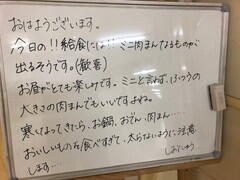 おはようございます。
今日の!!給食には!!ミニ肉まんなるものが、
出るそうです。(歓喜)
お昼がとても楽しみです。ミニと言わず、ふつうの
大きさの肉まんでもいいですよね。
寒くなってきたら、お鍋、おでん、肉まん……
おいしいものを食べすぎて、太らないように注意
します…